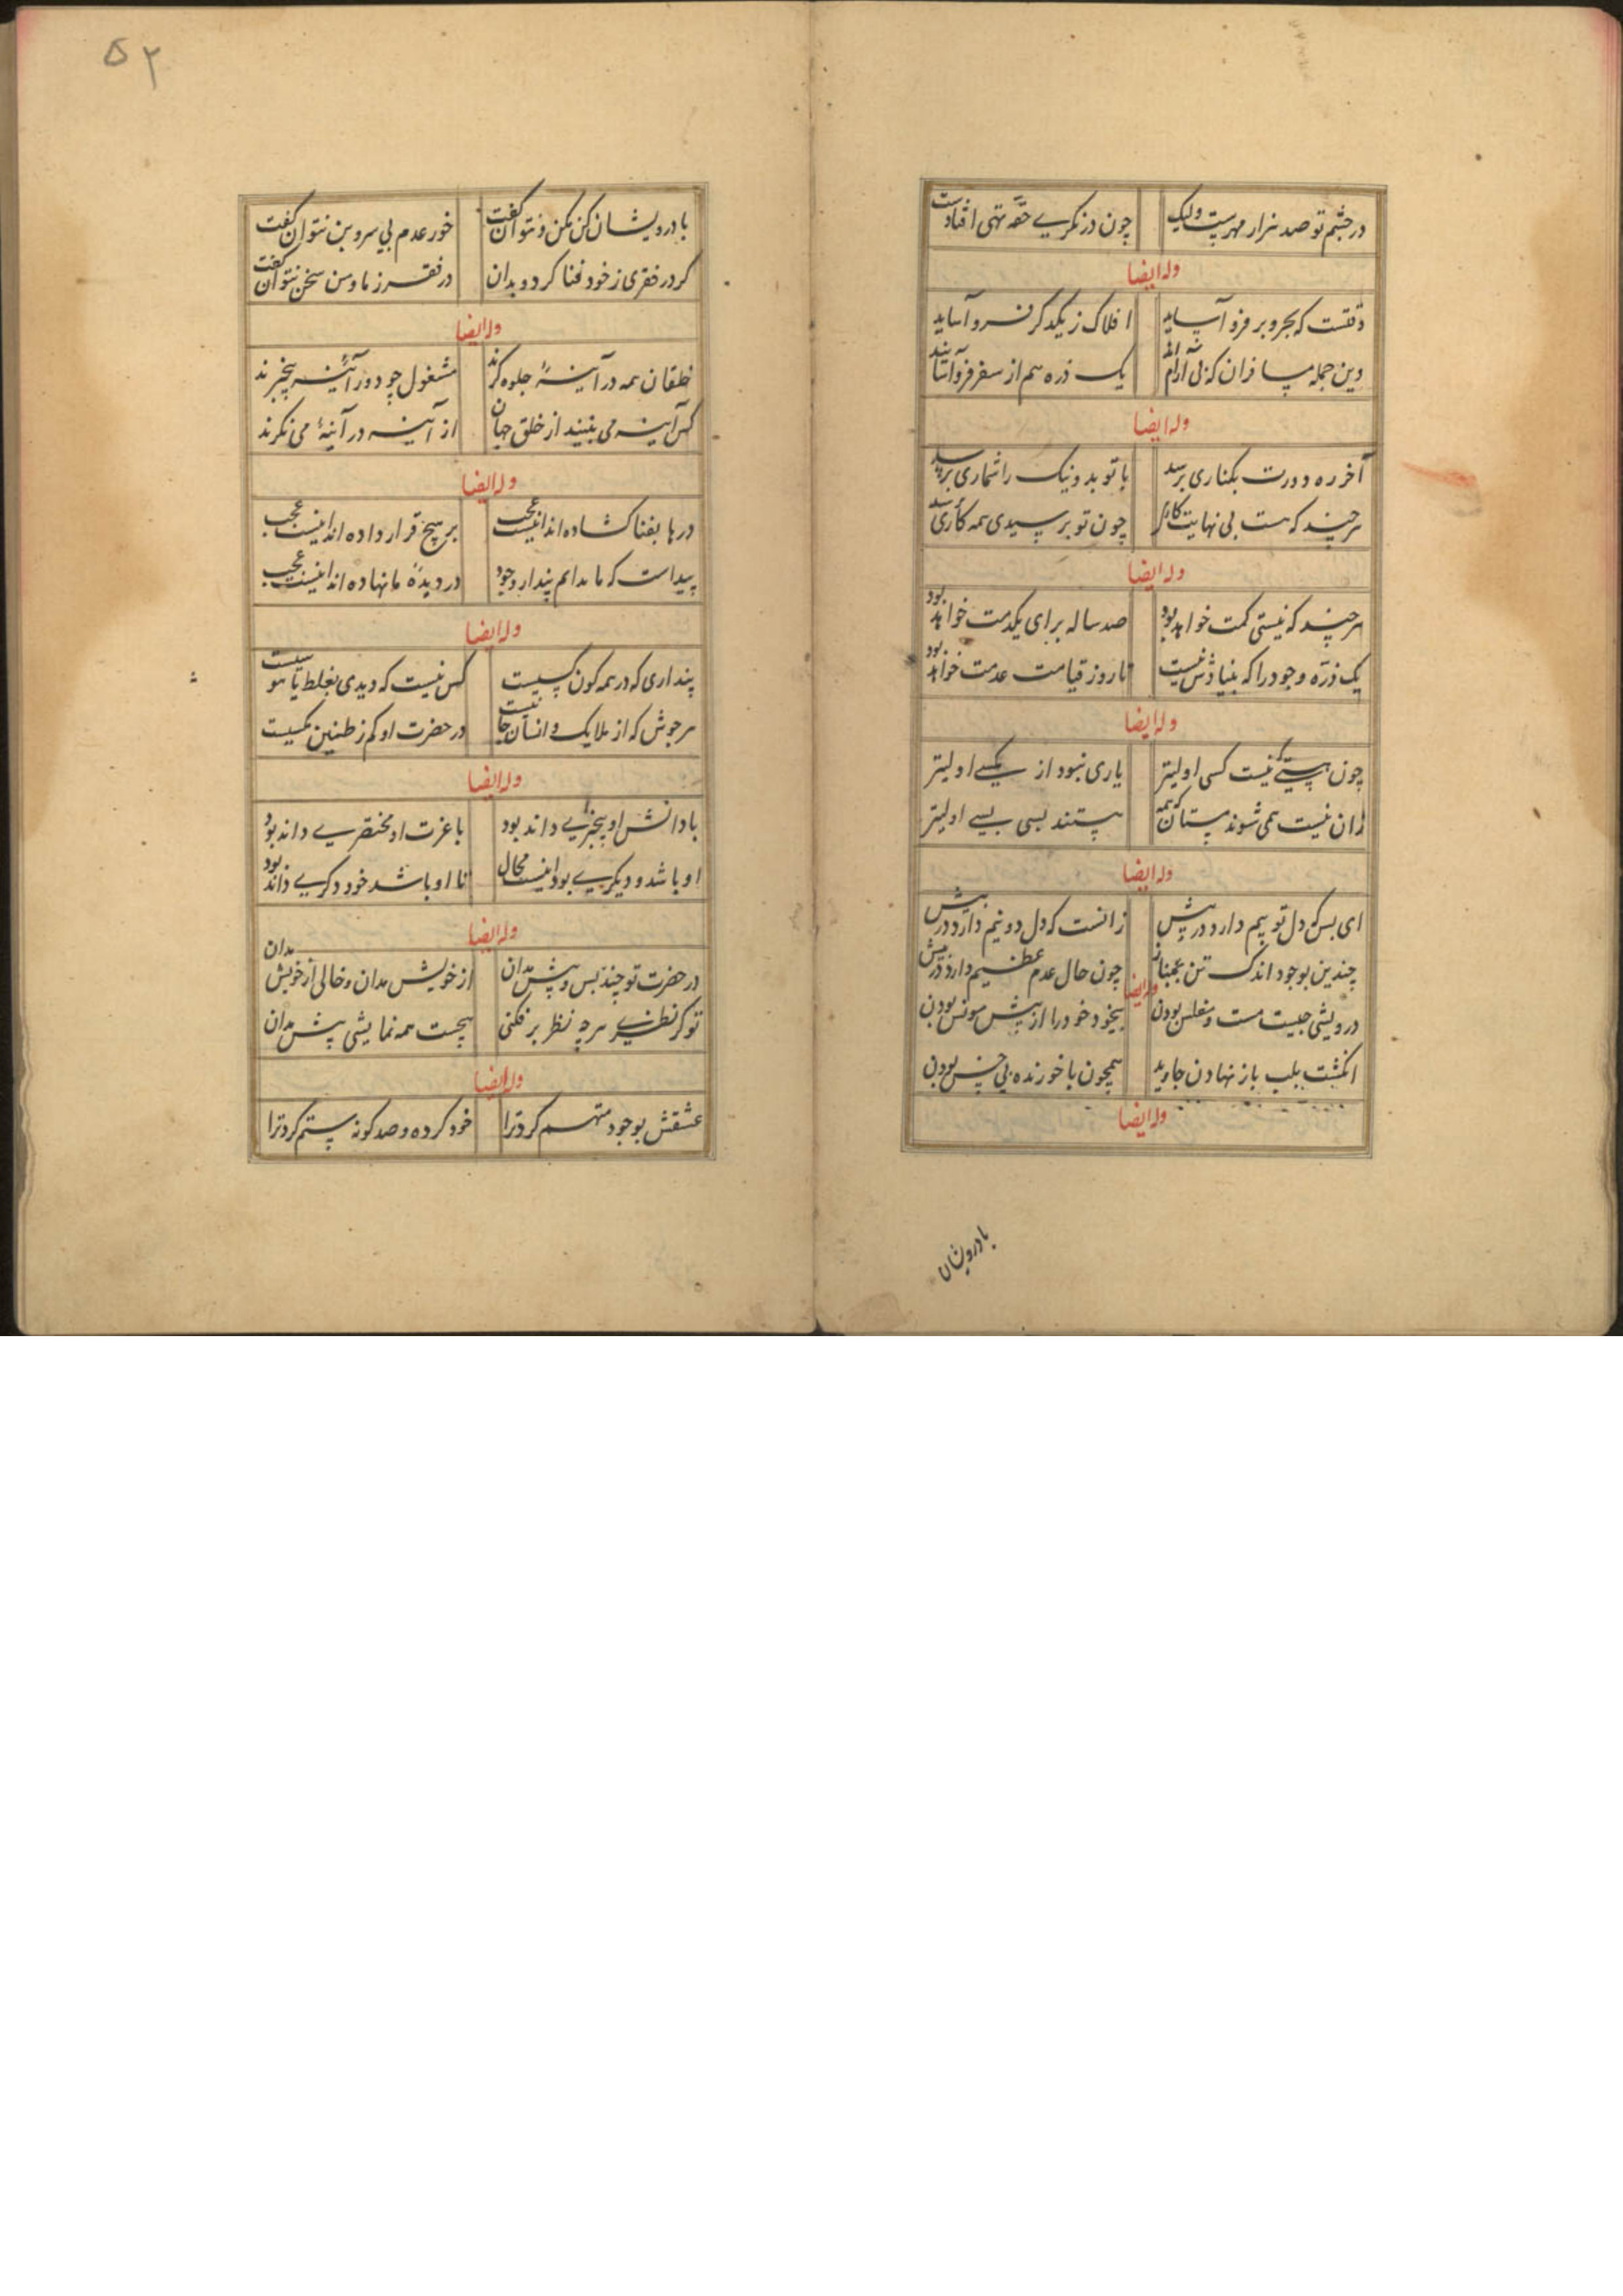 در چشم تو صد هزار مهرست ولیک چون در نگری حقه تهی افتادست
وله ایضا
وقتست که بحر و بر فرو آسایند افلاک ز یکدگر فرو آسایند
وین جمله مسافران که بی آرام اند یک ذره هم از سفر فرو آسایند
وله ایضا
آخر ره دورت بکناری برسد با تو بد و نیک را شماری برسد
هر چند که هست بی نهایت کار چون تو برسیدی همه کاری برسد
وله ایضا
هر چند که نیستی کمت خواهد بود صد ساله برای یکدمت خواهد بود
یک ذره وجود را که بنیادش نیست تا روز قیامت عدمت خواهد بود
وله ایضا
چون هستی نیست کسی اولیتر یاری نبود از یکسی اولیتر
زان نیست همی شوند هستان که همه هستند بسی بسی اولیتر
وله ایضا
ای بس که دل تو بیم دارد در پیش زانست که دل دو نیم دارد در پیش
چندین بوجود اندک تن بمناز چون حال عدم عظیم دارد در پیش
وله ایضا
درویشی چیست مست و مفلس بودن بیخود خود را از پیش مونس بودن
انگشت بلب باز نهادن جاوید همچون با خورنده بی حس بودن
وله ایضا
با درویشان
۵۲
با درویشان کن مکن و نتوان گفت خور عدم بی سر و بن نتوان گفت
گر در فقری ز خود فنا گرد و بدان در فقر ز ما و من سخن نتوان گفت
وله ایضا
خلقان همه در آینهٔ جلوه گرند مشغول خود و ز آینه بیخبرند
کس آینه می نبیند از خلق جهان از آینه در آینهٔ می نگرند
وله ایضا
درها بفنا گشاده اند اینست عجب بر هیچ قرار داده اند اینست عجب
پیداست که ما مدایم پندار وجود در دیدهٔ ما نهاده اند اینست عجب
وله ایضا
پنداری که در همه کون کسیست کس نیست که دیدی بغلط یا هوسیست
هر جوش که از ملایک و انسان خاست در حضرت او کم ز طنین مگسیست
وله ایضا
با دانش او بیخبری داند بود با عزت او مختصری داند بود
او باشد و دیگری بود اینست محال تا او باشد خود دگری داند بود
وله ایضا
در حضرت تو چند پس و پیش مدان از خویش مدان و خالی از خویش مدان
تو گر نظری هر چه نظر بر فکنی هیچست همه نمایشی پیش مدان
وله ایضا
عشقش بوجود متهم کرد ترا خود کرده و صد گونه ستم کرد ترا